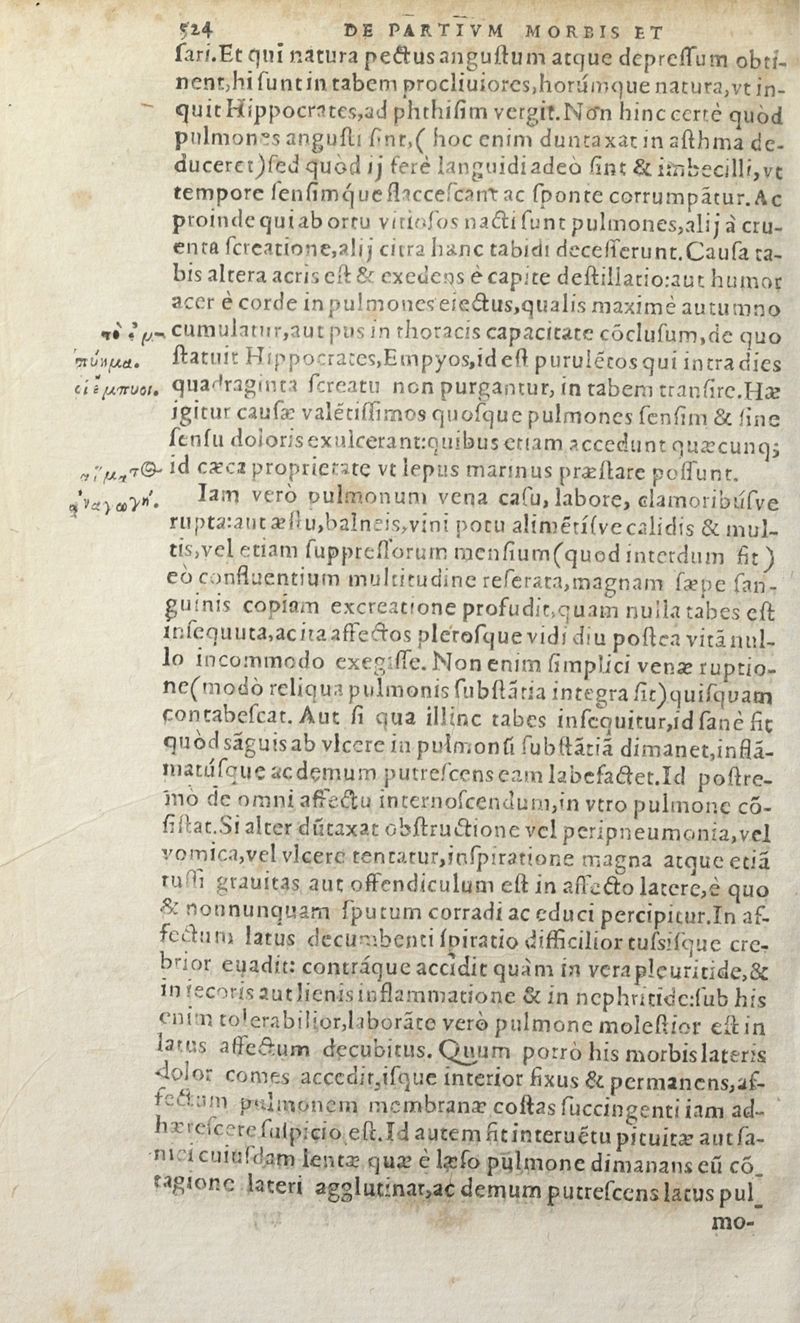 524 DE PARTIVM MORBIS ET
ſari. Et qui natura pectus anguſtum atque depreſſum obti-
nent, hi ſunt in tabem procliuiores, horúmque natura, vt in-
quit Hippocrates, ad phthiſim vergit. Non hinc certè quòd
pulmones anguſti ſint, ( hoc enim duntaxat in aſthma de-
duceret) ſed quòd ij ferè languidi adeò ſint & imbecilli, vt
tempore ſenſimq́ue flacceſcant ac ſponte corrumpãtur. Ac
proinde qui ab ortu vitioſos nacti ſunt pulmones, alij à cru-
enta ſcreatione, alij citra hanc tabidi deceſſerunt. Cauſa ta-
bis altera acris eſt & exedens è capite deſtillatio: aut humor
acer è corde in pulmones eiectus, qualis maximè autumno
τὸ ἐμ-
cumulatur, aut pus in thoracis capacitate cõcluſum, de quo
πύημα.
ſtatuit Hippocrates, Empyos, id eſt purulẽtos qui intra dies
οἱ ἔμπυοι.
quadraginta ſcreatu non purgantur, in tabem tranſire. Hæ
igitur cauſæ valẽtiſſimos quoſque pulmones ſenſim & ſine
ſenſu doloris exulcerant: quibus etiam accedunt quæcunq;
αἵματος
id cæca proprietate vt lepus marinus præſtare poſſunt.
ἀναγωγή.
Iam verò pulmonum vena caſu, labore, clamoribúſve
rupta: aut æſtu, balneis, vini potu alimẽtiſve calidis & mul-
tis, vel etiam ſuppreſſorum menſium (quod interdum fit)
eò confluentium multitudine reſerata, magnam ſæpe ſan-
guinis copiam excreatione profudit, quam nulla tabes eſt
inſequuta, ac ita affectos pleroſque vidi diu poſtea vitã nul-
lo incommodo exegiſſe. Non enim ſimplici venæ ruptio-
ne (modò reliqua pulmonis ſubſtãtia integra ſit) quiſquam
contabeſcat. Aut ſi qua illinc tabes inſequitur, id ſanè fit
quòd sãguis ab vlcere in pulmonũ ſubſtãtiã dimanet, inflã-
matúſque ac demum putreſcens eam labefactet. Id poſtre-
mò de omni affectu internoſcendum, in vtro pulmone cõ-
ſiſtat. Si alter dũtaxat obſtructione vel peripneumonia, vel
vomica, vel vlcere tentatur, inſpiratione magna atque etiã
tuſſi grauitas aut offendiculum eſt in affecto latere, è quo
& nonnunquam ſputum corradi ac educi percipitur. In af-
fectum latus decumbenti ſpiratio difficilior tuſsíſque cre-
brior euadit: contráque accidit quàm in vera pleuritide, &
in iecoris aut lienis inflammatione & in nephritide: ſub his
enim tolerabilior, laborãte verò pulmone moleſtior eſt in
latus affectum decubitus. Quum porrò his morbis lateris
dolor comes accedit, iſque interior fixus & permanens, af-
fectum pulmonem membranæ coſtas ſuccingenti iam ad-
hæreſcere ſuſpicio eſt. Id autem fit interuẽtu pituitæ aut ſa-
niei cuiuſdam lentæ quæ è læſo pulmone dimanans eũ cõ-
tagione lateri agglutinat, ac demum putreſcens latus pul-
mo-